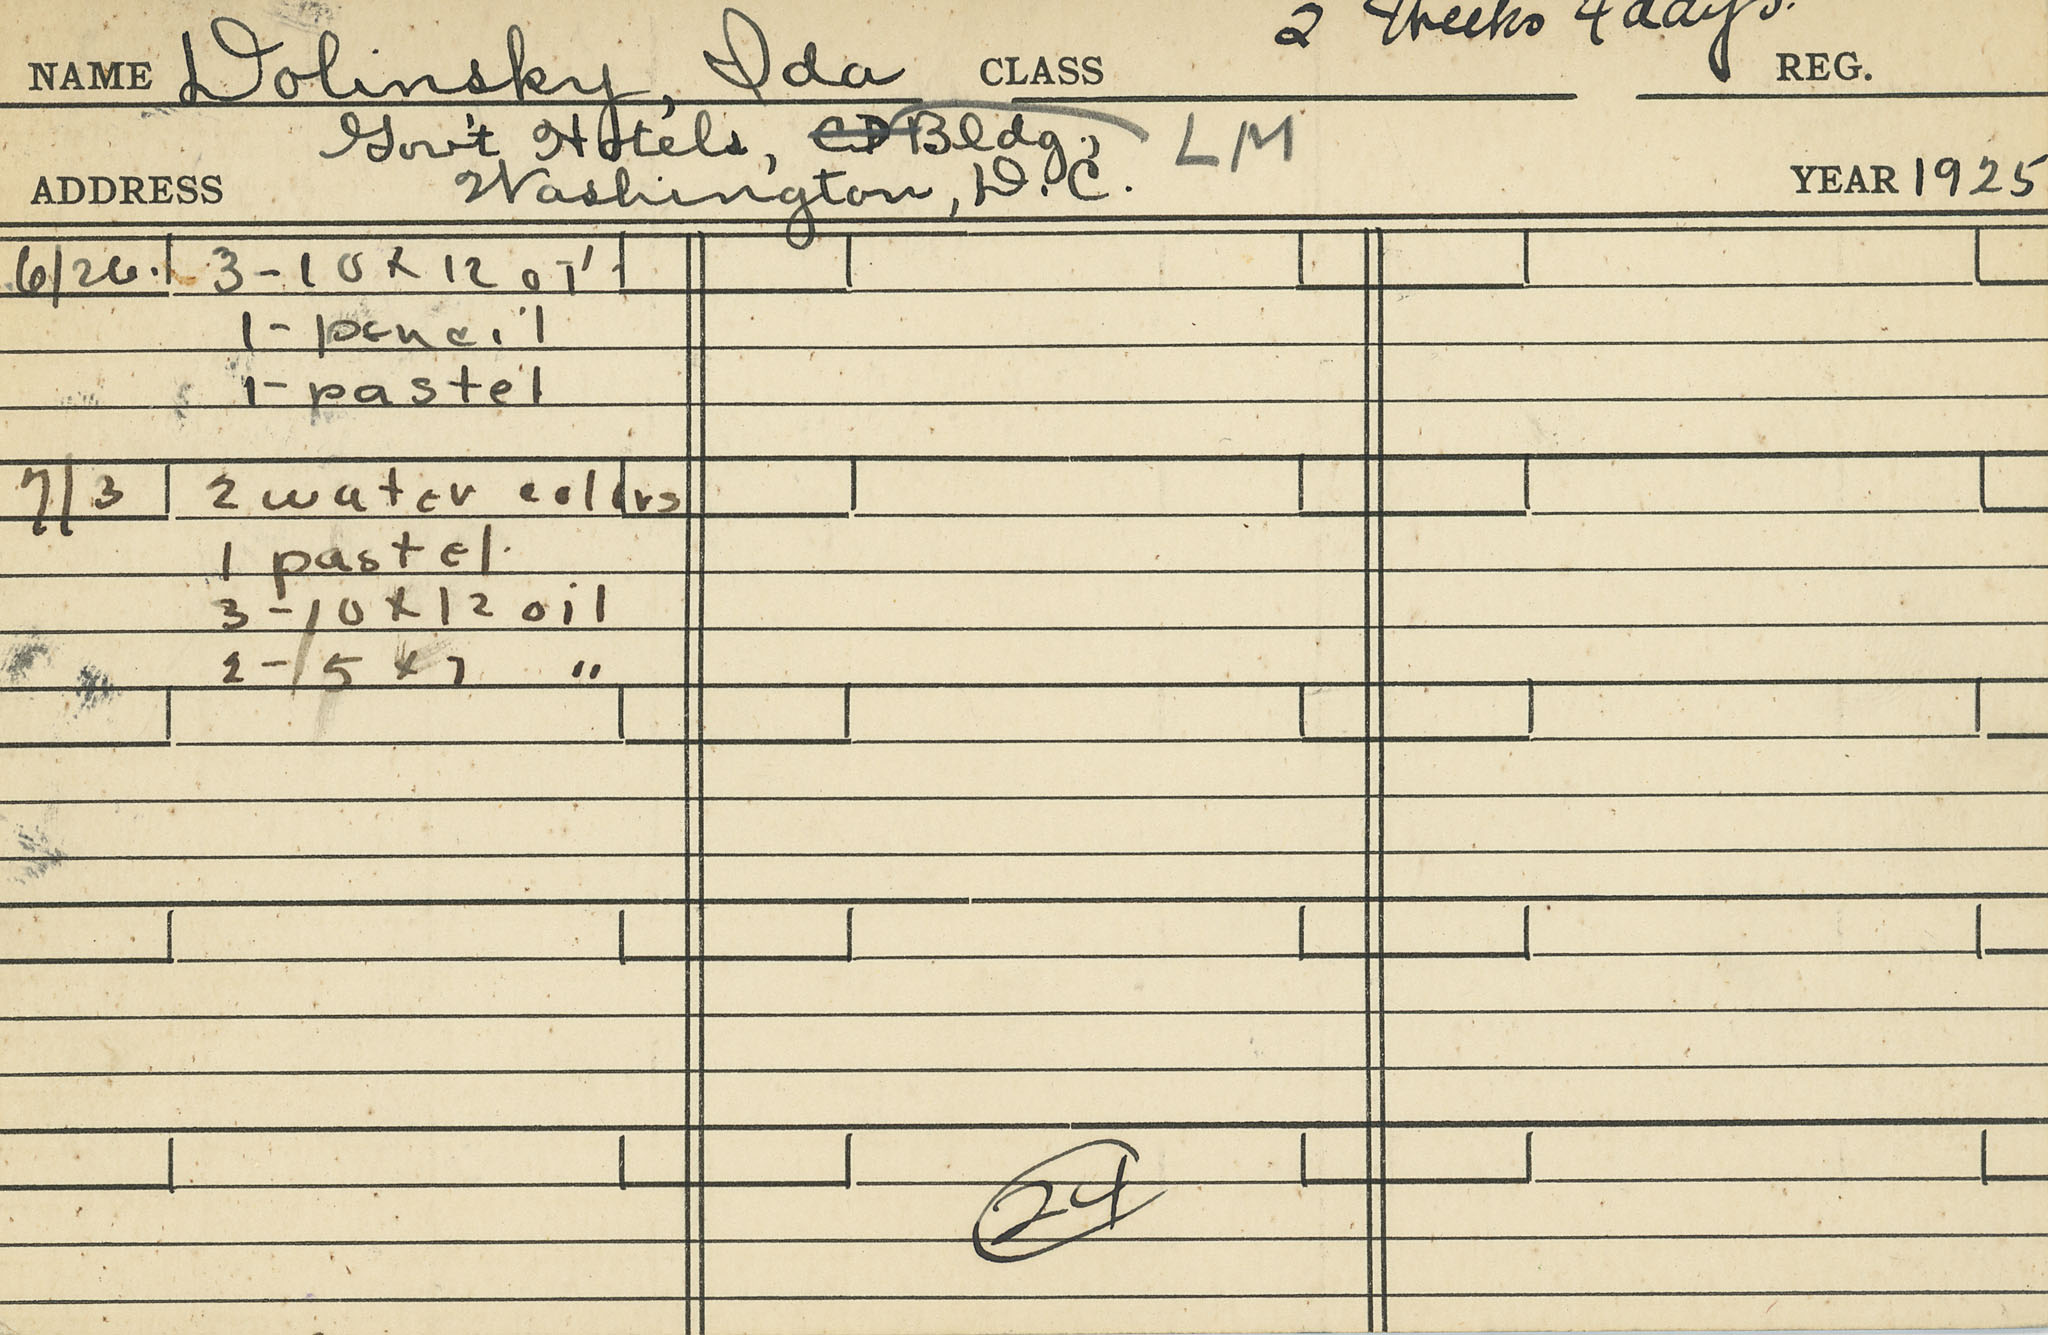 2 Weeks 4 days.
NAME Dolinsky, Ida CLASS REG.
Gov't Hotels, CD Bldg., LM
ADDRESS Washington, D.C. YEAR 1925
6/26. 3-10 x 12 oil
1-pencil
1-pastel
7/3 2 water colors
1 pastel.
3-10 x 12 oil
2-5 x 7 "
24